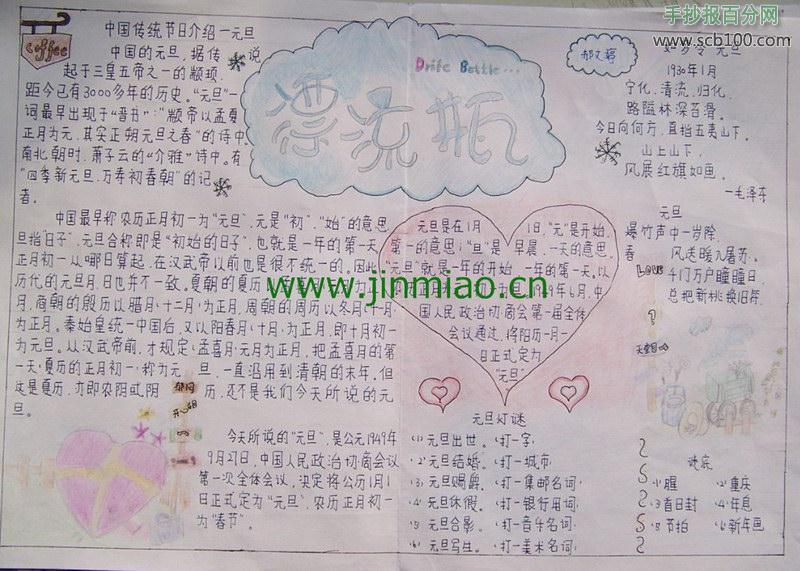 手抄报百分网
www.scb100.com
coffee
中国传统节日介绍—元旦
中国的元旦，据传说
起于三皇五帝之一的颛顼，
距今已有3000多年的历史。"元旦"一
词最早出现于"晋书"："颛帝以孟夏
正月为元，其实正朔元旦之春"的诗中。
南北朝时，萧子云的"介雅"诗中，有
"四季新元旦，万寿初春朝"的记
者。
中国最早称农历正月初一为"元旦"，元是"初"、"始"的意思，
旦指"日子"，元旦合称即是"初始的日子"，也就是一年的第一天。
正月初一从哪日算起，在汉武帝以前也是很不统一的。因此，
历代的元旦月、日也并不一致。夏朝的夏历
月，商朝的殷历以腊月（十二月）为正月，周朝的周历以冬月（十一月）
为正月。秦始皇统一中国后，又以阳春月（十月）为正月，即十月初一
为元旦。从汉武帝起，才规定（孟喜月）元月为正月，把孟喜月的第
一天（夏历的正月初一）称为元旦，一直沿用到清朝的末年。但
这是夏历，亦即农历或阴历，还不是我们今天所说的元
旦。
今天所说的"元旦"，是公元1949年
9月27日，中国人民政治协商会议
第一次全体会议，决定将公历1月1
日正式定为"元旦"、农历正月初一
为"春节"。
Drife Bottle...
漂流瓶
元旦是在1月1日，"元"是开始，
第一的意思；"旦"是早晨，一天的意思。
"元旦"就是一年的开始，一年的第一天。以
49年6月，中
国人民政治协商会第一届全体
会议通过，将阳历一月一
日正式定为
"元旦"
www.jinmiao.cn
元旦灯谜
（1）元旦出世。（打一字）
（2）元旦结婚。（打一城市）
（3）元旦赐爵。（打一集邮名词）
（4）元旦休假。（打一银行用词）
（5）元旦合影。（打一音乐名词）
（6）元旦写生。（打一美术名词）
元旦
1930年1月
宁化、清流、归化，
路隘林深苔滑。
今日向何方，直指武夷山下。
山上山下，
风展红旗如画。
—毛泽东
元旦
爆竹声中一岁除，
春风送暖入屠苏。
千门万户曈曈日，
总把新桃换旧符。
Love
开心
谜底
（1）腥 （2）重庆
（3）首日封 （4）年息
（5）节拍 （6）新年画